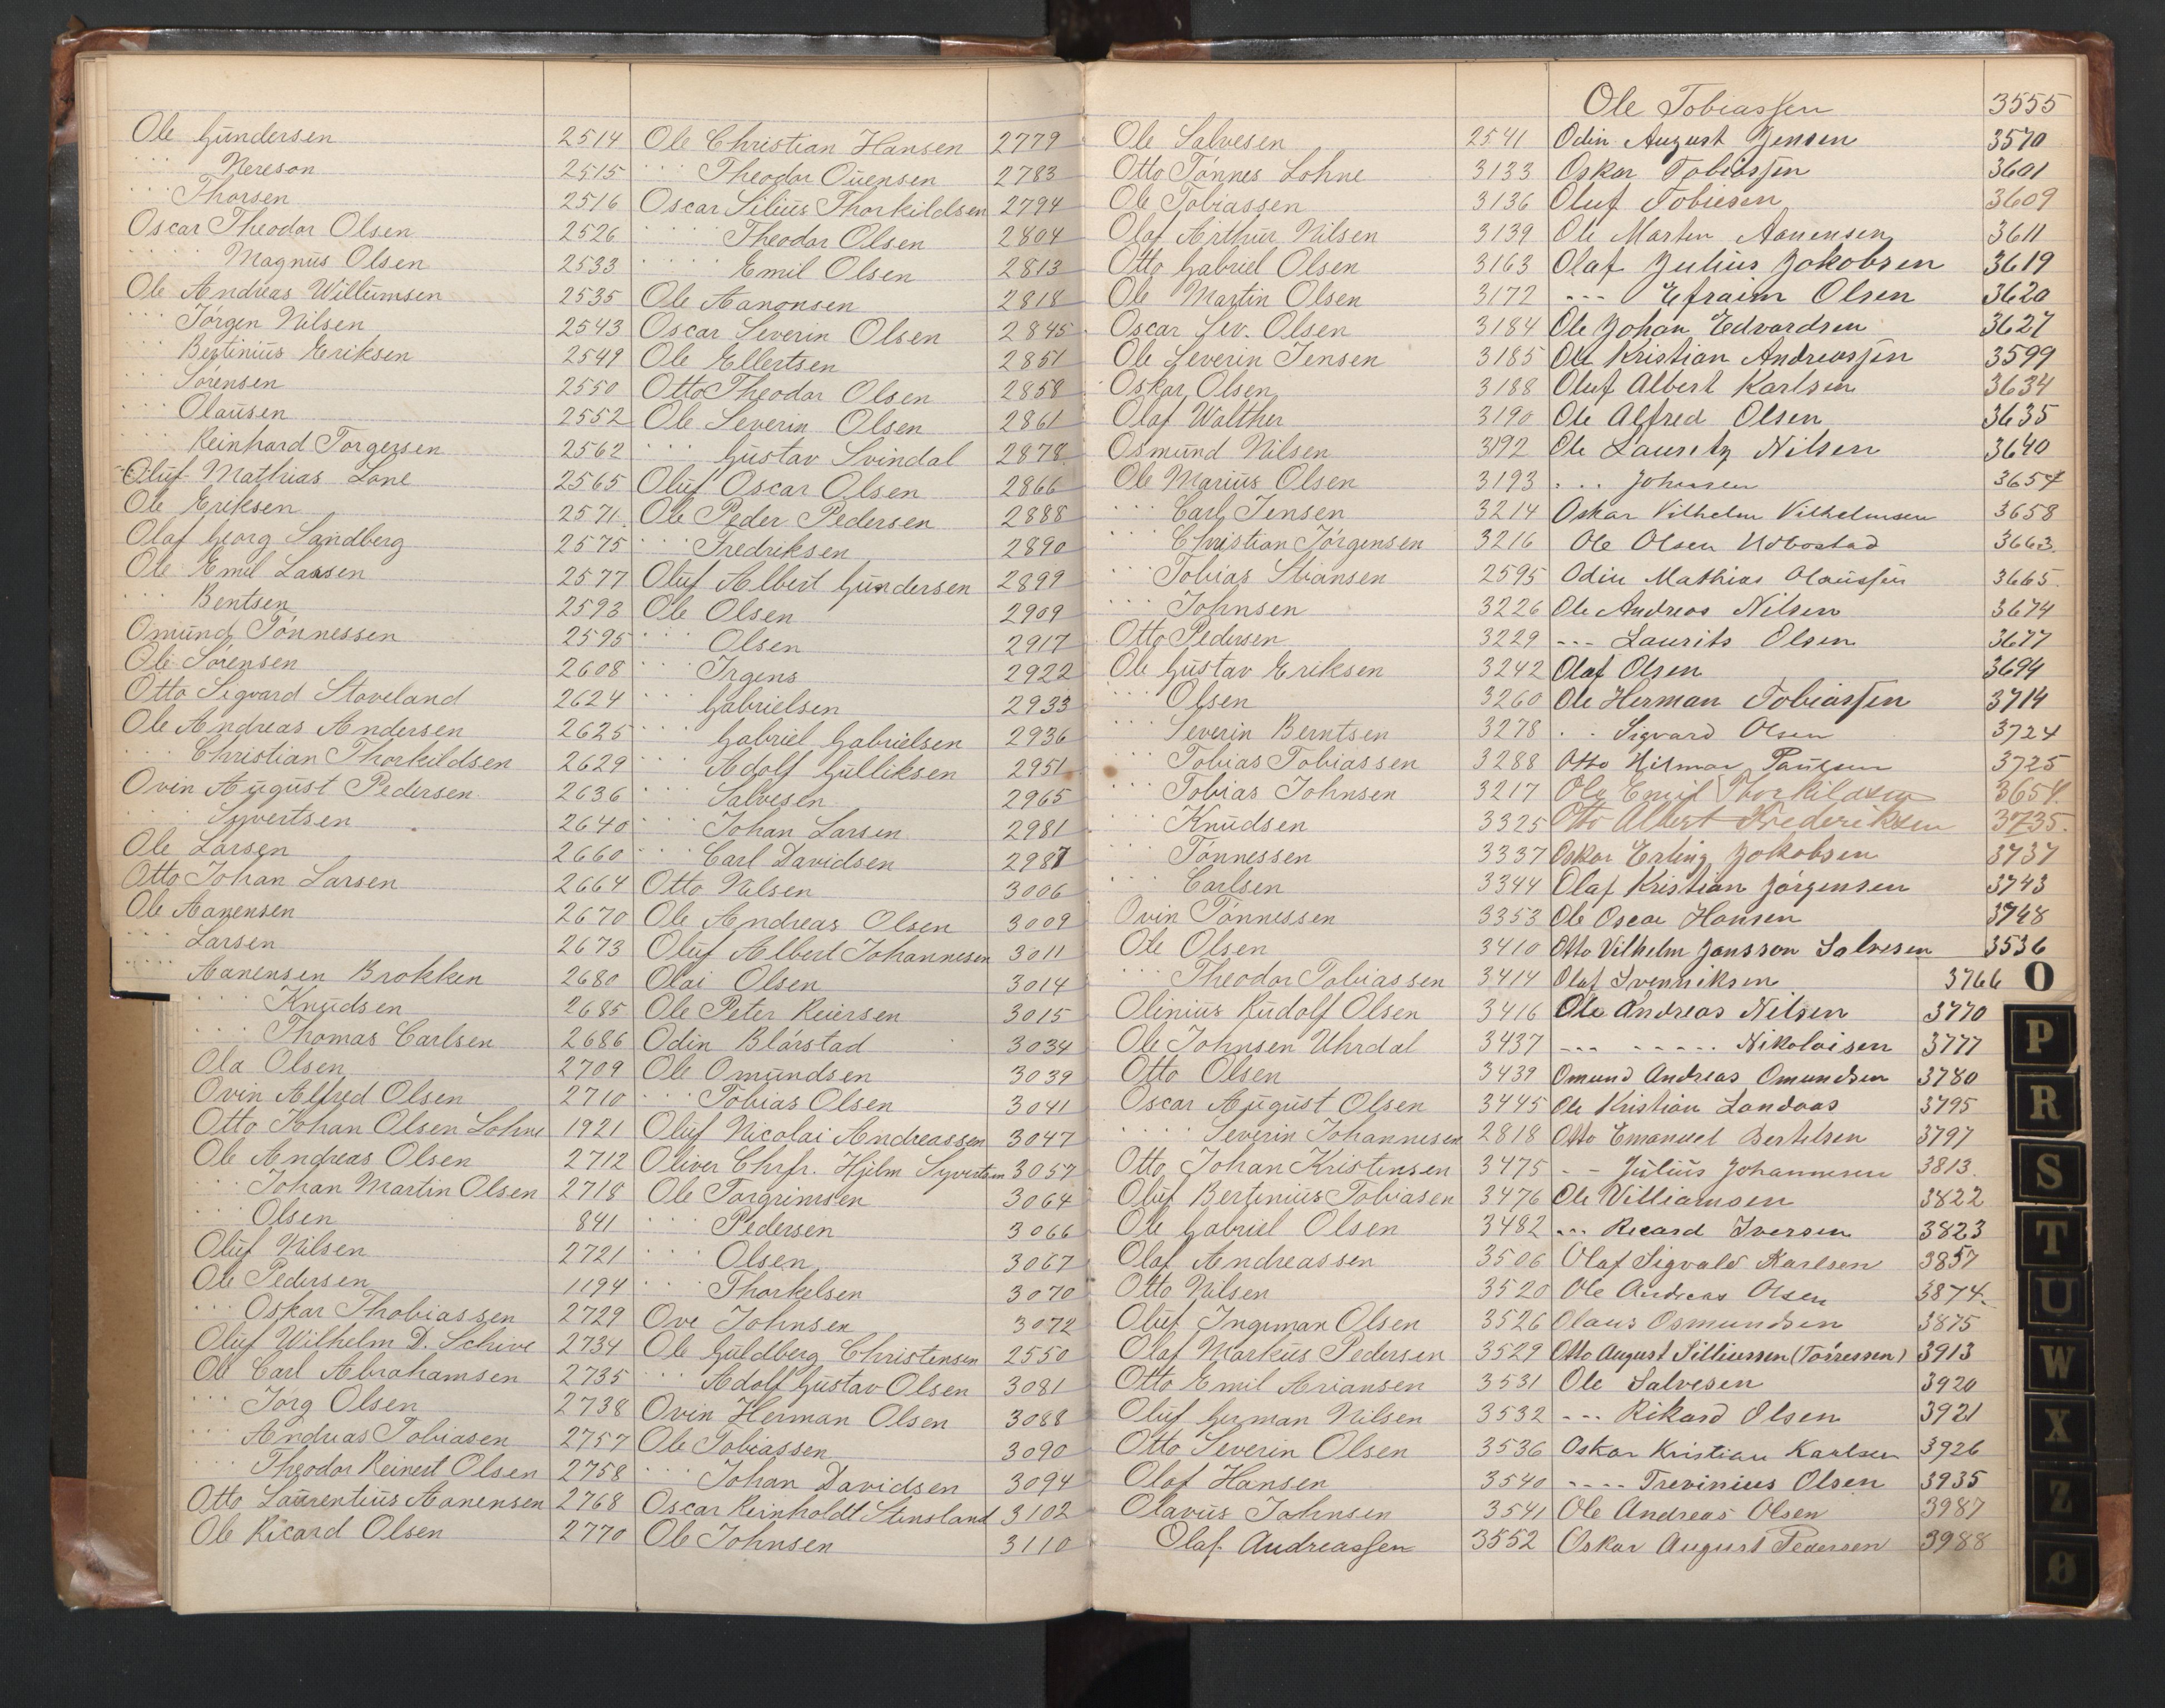 Ole Gundersen 2514
" Nereson 2515
" Thorsen 2516
Oscar Theodor Olsen 2526
" Magnus Olsen 2533
Ole Andreas Willumsen 2535
" Jörgen Nilsen 2543
" Bertinius Eriksen 2549
" Sörensen 2550
" Olausen 2552
" Reinhard Torgersen 2562
Oluf Mathias Lone 2565
Ole Eriksen 2571
Olaf Georg Sandberg 2575
Ole Emil Lassen 2577
" Bentsen 2593
Omund Tönnessen 2595
Ole Sörensen 2608
Otto Sigvard Stoveland 2624
Ole Andreas Andersen 2625
" Christian Thorkildsen 2629
Ovin August Pedersen 2636
" Syvertsen 2640
Ole Larsen 2660
Otto Johan Larsen 2664
Ole Aanensen 2670
" Larsen 2673
" Aanensen Brokken 2680
" Knudsen 2685
" Thomas Carlsen 2686
Ola Olsen 2709
Ovin Alfred Olsen 2710
Otto Johan Olsen Lohne 1921
Ole Andreas Olsen 2712
" Johan Martin Olsen 2718
" Olsen 841
Oluf Nilsen 2721
Ole Pedersen 1194
" Oskar Thobiassen 2729
Oluf Wilhelm D. Schive 2734
Ole Carl Abrahamsen 2735
" Jorg Olsen 2738
" Andreas Tobiasen 2757
" Theodor Reinert Olsen 2758
Otto Laurentius Aanensen 2768
Ole Ricard Olsen 2770
Ole Christian Hansen 2779
" Theodor Ouensen 2783
Oscar Silius Thorkildsen 2794
" Theodor Olsen 2804
" Emil Olsen 2813
Ole Aanonsen 2818
Oscar Severin Olsen 2845
Ole Ellertsen 2851
Otto Theodor Olsen 2858
Ole Severin Olsen 2861
" Gustav Svindal 2878
Oluf Oscar Olsen 2866
Ole Peder Pedersen 2888
" Fredriksen 2890
Oluf Albert Gundersen 2899
Ole Olsen 2909
" Olsen 2917
" Irgens 2922
" Gabrielsen 2933
" Gabriel Gabrielsen 2936
" Adolf Gulliksen 2951
" Salvesen 2965
" Johan Larsen 2981
" Carl Davidsen 2987
Otto Nilsen 3006
Ole Andreas Olsen 3009
Oluf Albert Johannesen 3011
Olai Olsen 3014
Ole Peter Reiersen 3015
Odin Blårstad 3034
Ole Omundsen 3039
" Tobias Olsen 3041
Oluf Nicolai Andreassen 3047
Oliver Chrfr. Hjelm Syvertsen 3057
Ole Torgrimsen 3064
" Pedersen 3066
" Olsen 3067
" Thorkelsen 3070
Ove Johnsen 3072
Ole Guldberg Christensen 2550
" Adolf Gustav Olsen 3081
Ovin Herman Olsen 3088
Ole Tobiassen 3090
" Johan Davidsen 3094
Oscar Reinholdt Stensland 3102
Ole Johnsen 3110
Ole Salvesen 2541
Otto Tönnes Lohne 3133
Ole Tobiassen 3136
Olaf Arthur Nilsen 3139
Otto Gabriel Olsen 3163
Ole Martin Olsen 3172
Oscar Sev. Olsen 3184
Ole Severin Jensen 3185
Oskar Olsen 3188
Olaf Walther 3190
Osmund Nilsen 3192
Ole Marius Olsen 3193
" Carl Jensen 3214
" Christian Jörgensen 3216
" Tobias Stiansen 2595
" Johnsen 3226
Otto Pedersen 3229
Ole Gustav Eriksen 3242
" Olsen 3260
" Severin Berntsen 3278
" Tobias Tobiassen 3288
" Tobias Johnsen 3217
" Knudsen 3325
" Tönnessen 3337
" Carlsen 3344
Ovin Tönnessen 3353
Ole Olsen 3410
" Theodor Tobiassen 3414
Olinius Rudolf Olsen 3416
Ole Johnsen Uhrdal 3437
Otto Olsen 3439
Oscar August Olsen 3445
" Severin Johannesen 2818
Otto Johan Kristensen 3475
Oluf Bertinius Tobiasen 3476
Ole Gabriel Olsen 3482
Olaf Andreassen 3506
Otto Nilsen 3520
Oluf Ingeman Olsen 3526
Olaf Markus Pedersen 3529
Otto Emil Ariansen 3531
Oluf German Nilsen 3532
Otto Severin Olsen 3536
Olaf Hansen 3540
Olavus Johnsen 3541
Olaf Andreassen 3552
Ole Tobiassen 3555
Odin August Jensen 3570
Oskar Tobiassen 3601
Oluf Tobiesen 3609
Ole Martin Aanensen 3611
Olaf Julius Jakobsen 3619
--- Efraim Olsen 3620
Ole Johan Edvardsen 3627
Ole Kristian Andreassen 3599
Oluf Albert Karlsen 3634
Ole Alfred Olsen 3635
Ole Lauritz Nilsen 3640
" Johansen 3654
Oskar Vilhelm Vilhelmsen 3658
Ole Olsen Udbostad 3663
Odin Mathias Olaussen 3665
Ole Andreas Nilsen 3674
--- Laurits Olsen 3677
Olaf Olsen 3694
Ole Herman Tobiassen 3714
" Sigvard Olsen 3724
Otto Hilmar Paulsen 3725
Ole Emil Thorkildsen 3654
Otto Albert Frederiksen 3735
Oskar Erling Jakobsen 3737
Olaf Kristian Jørgensen 3743
Ole Oscar Hansen 3748
Otto Vilhelm Jansson Salvesen 3536
Olaf Svenniksen 3766
Ole Andreas Nilsen 3770
--- ----- Nikolaisen 3777
Omund Andreas Omundsen 3780
Ole Kristian Landaas 3795
Otto Emanuel Bertelsen 3797
-- Julius Johannesen 3813
Ole Villiamsen 3822
--- Ricard Iversen 3823
Olaf Sigvald Karlsen 3857
Ole Andreas Olsen 3874
Olaus Osmundsen 3875
Otto August Silliussen (Tørressen) 3913
Ole Salvesen 3920
--- Rikard Olsen 3921
Oskar Kristian Karlsen 3926
---- Trevinius Olsen 3935
Ole Andreas Olsen 3987
Oskar August Pedersen 3988
O
P
R
S
T
U
W
X
Z
Ø